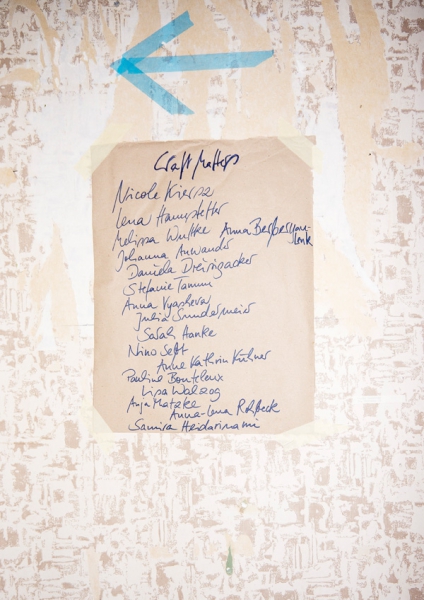 Craft Matters
Nicole Kiersz
Lena Hampstetter
Melissa Wuttke Anna Berbergyan-Lenk
Johanna Anwander
Daniela Dreisigacker
Stefanie Tamm
Anna Vyasheva
Julia Sundermeier
Sarah Hanke
Nino
Anne Kathrin Kühner
Pauline Bonteloux
Lisa Walzog
Anja Matzke
Anna-Lena Rohbeck
Samira Heidarinami